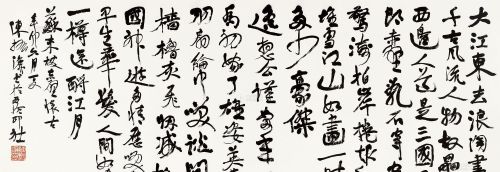 大江東去浪淘盡
千古風流人物故壘
西邊人道是三國
郎赤壁亂石穿空
驚濤拍岸捲起
堆雪江山如畫一時
多少豪傑
遙想公瑾當年
喬初嫁了雄姿英
羽扇綸巾笑談間
檣櫓灰飛煙滅故
國神遊多情應笑
早生華髮人間如
一樽還酹江月
蘇東坡赤壁懷古